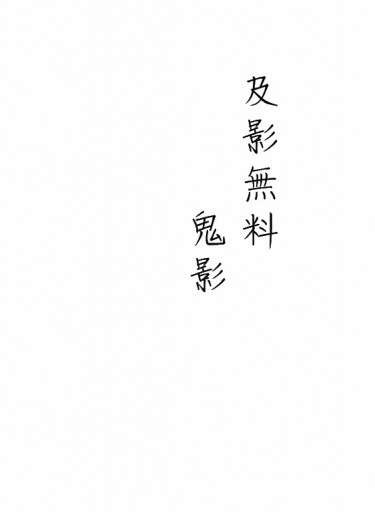 及影無料
鬼影